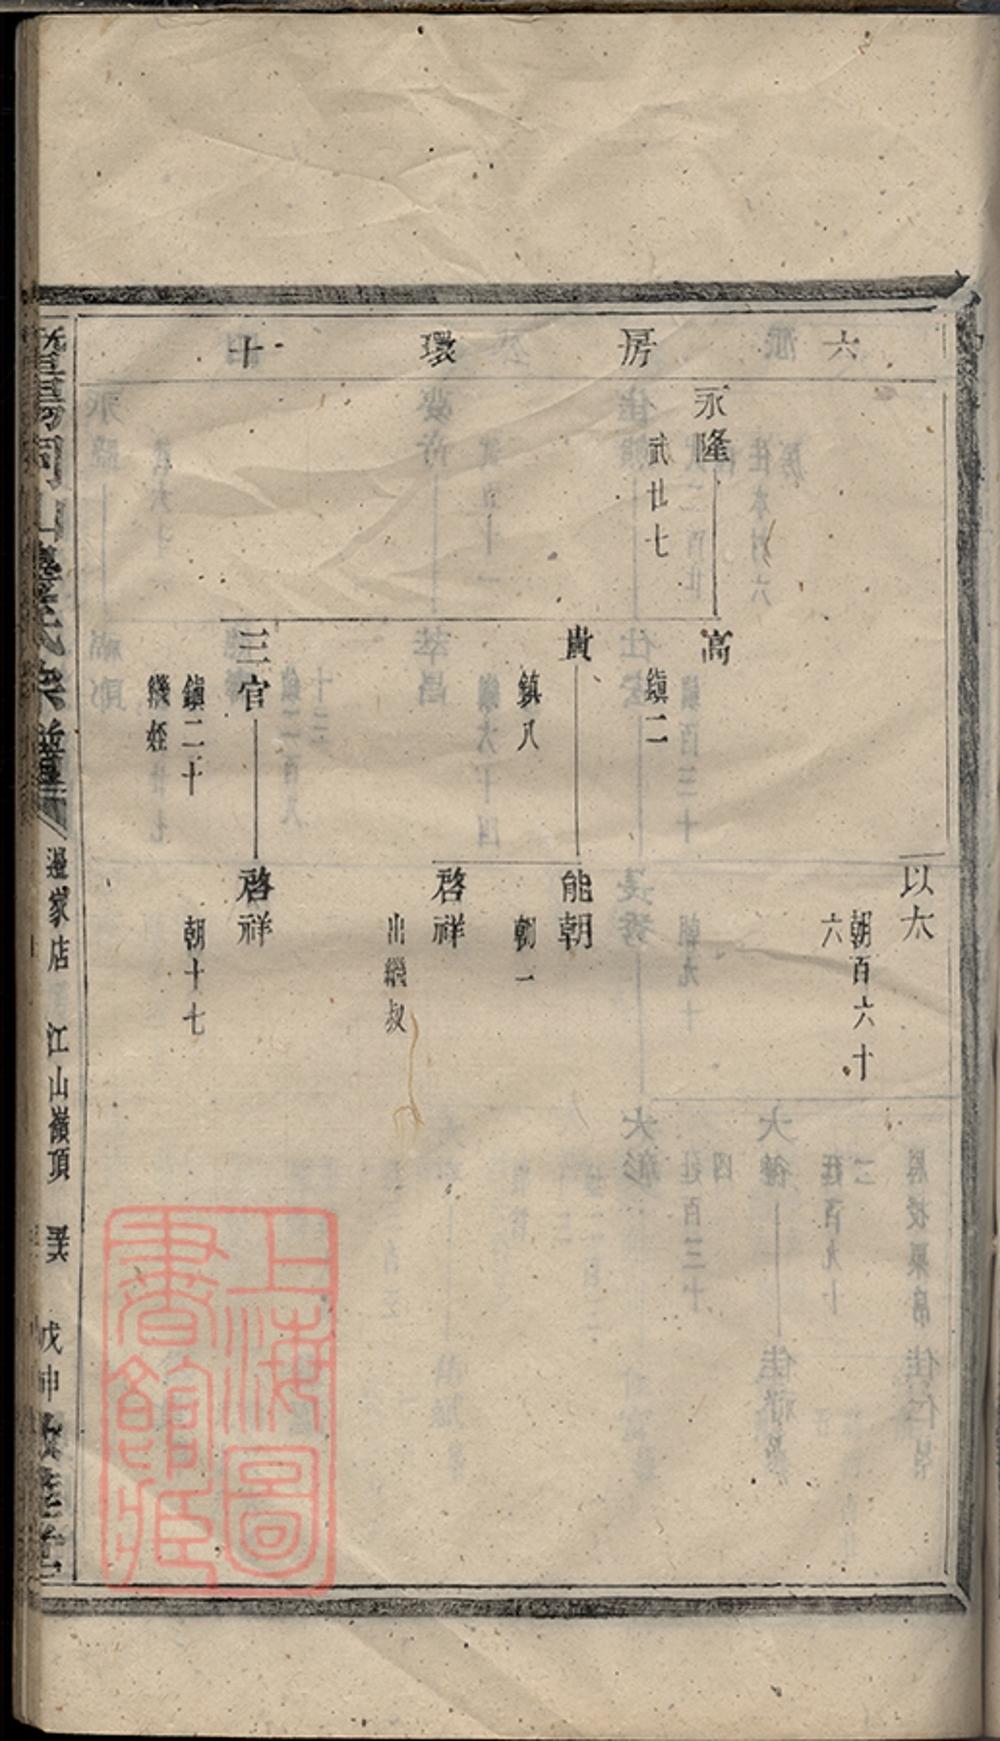 六　房　環　十
永隆
武廿七
高
鎮二
貴
鎮八
三官
鎮二十
繼姪
以大
朝百六十
六
能朝
朝一
啓祥
出繼叔
啓祥
朝十七
邊家店　江山嶺頂
戊申
上海圖
書館藏